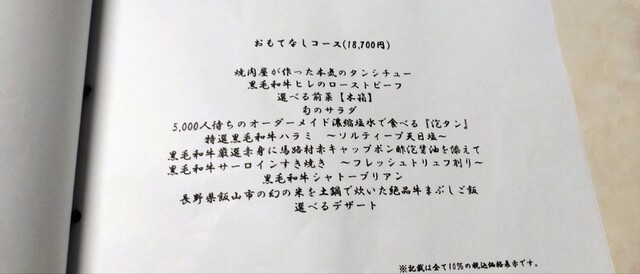 おもてなしコース(18,700円)
焼肉屋が作った本気のタンシチュー
黒毛和牛ヒレのローストビーフ
選べる前菜【木箱】
旬のサラダ
5,000人待ちのオーダーメイド濃縮塩水で食べる『泡タン』
特選黒毛和牛ハラミ ～ソルティーブ天日塩～
黒毛和牛厳選赤身に馬路村赤キャップポン酢泡醤油を添えて
黒毛和牛サーロインすき焼き ～フレッシュトリュフ削り～
黒毛和牛シャトーブリアン
長野県飯山市の幻の米を土鍋で炊いた絶品牛まぶしご飯
選べるデザート
※記載は全て10%の税込価格表示です。